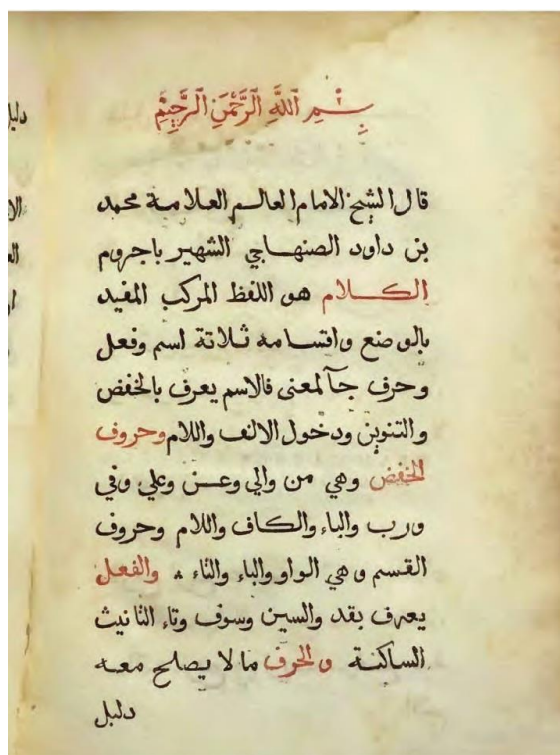 بِسْمِ ٱللَّهِ ٱلرَّحْمَٰنِ ٱلرَّحِيمِ
قال الشيخ الامام العالم العلامة محمد
بن داود الصنهاجي الشهير باجروم
الكلام هو اللفظ المركب المفيد
بالوضع واقسامه ثلاثة اسم وفعل
وحرف جآ لمعنى فالاسم يعرف بالخفض
والتنوين ودخول الالف واللام وحروف
الخفض وهي من والي وعن وعلي وفي
ورب والباء والكاف واللام وحروف
القسم وهي الواو والباء والتاء والفعل
يعرف بقد والسين وسوف وتاء التانيث
الساكنة والحرف ما لا يصلح معه
دليل